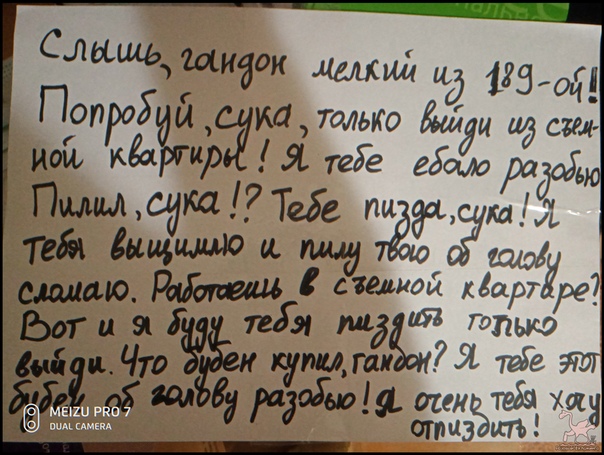 Слышь, гандон мелкий из 189-ой!
Попробуй, сука, только выйди из съем-
ной квартиры! Я тебе ебало разобью
Пилил, сука!? Тебе пизда, сука! Я
тебя выщимлю и пилу твою об голову
сломаю. Работаешь в съемной квартире?
Вот и я буду тебя пиздить только
выйди. Что бубен купил, гандон? Я тебе этот
бубен об голову разобью! Я очень тебя хочу
отпиздить!
MEIZU PRO 7
DUAL CAMERA